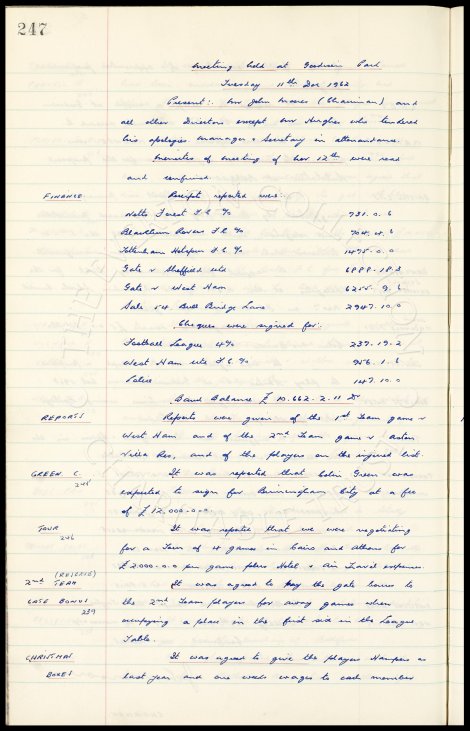 247
Meeting held at Goodison Park
Tuesday 11th Dec 1962
Present: Mr John Moores (Chairman) and
all other Directors except Mr Hughes who tendered
his apologies Manager & Secretary in attendance.
Minutes of meeting of Nov 12th were read
and confirmed.
FINANCE Receipts reported were:
Notts Forest F.C. % 731.0.6
Blackburn Rovers F.C. % 704.4.6
Tottenham Hotspur F.C. % 1475.0.0
Gate v Sheffield Utd 6888.18.3
Gate v West Ham 6255.9.6
Sale 54 Bull Bridge Lane 2947.10.0
Cheques were signed for:
Football League 4% 237.19.2
West Ham Utd F.C. % 956.1.6
Police 147.10.0
Bank Balance £ 10.662.2.11 Dr
REPORTS Reports were given of the 1st Team game v
West Ham and of the 2nd Team game v Aston
Villa Res, and of the players on the injured list.
GREEN C. It was reported that Colin Green was
expected to sign for Birmingham City at a fee
of £12,000-0-0.
TOUR It was reported that we were negotiating
246 for a Tour of 4 games in Cairo and Athens for
£2000-0-0 per game plus Hotel & Air Travel expenses.
2nd (RESERVE) TEAM It was agreed to pay the gate bonus to
GATE BONUS the 2nd Team players for away games when
239 occupying a place in the first six in the League
Table.
CHRISTMAS It was agreed to give the players Hampers as
BOXES last year and one weeks wages to each member